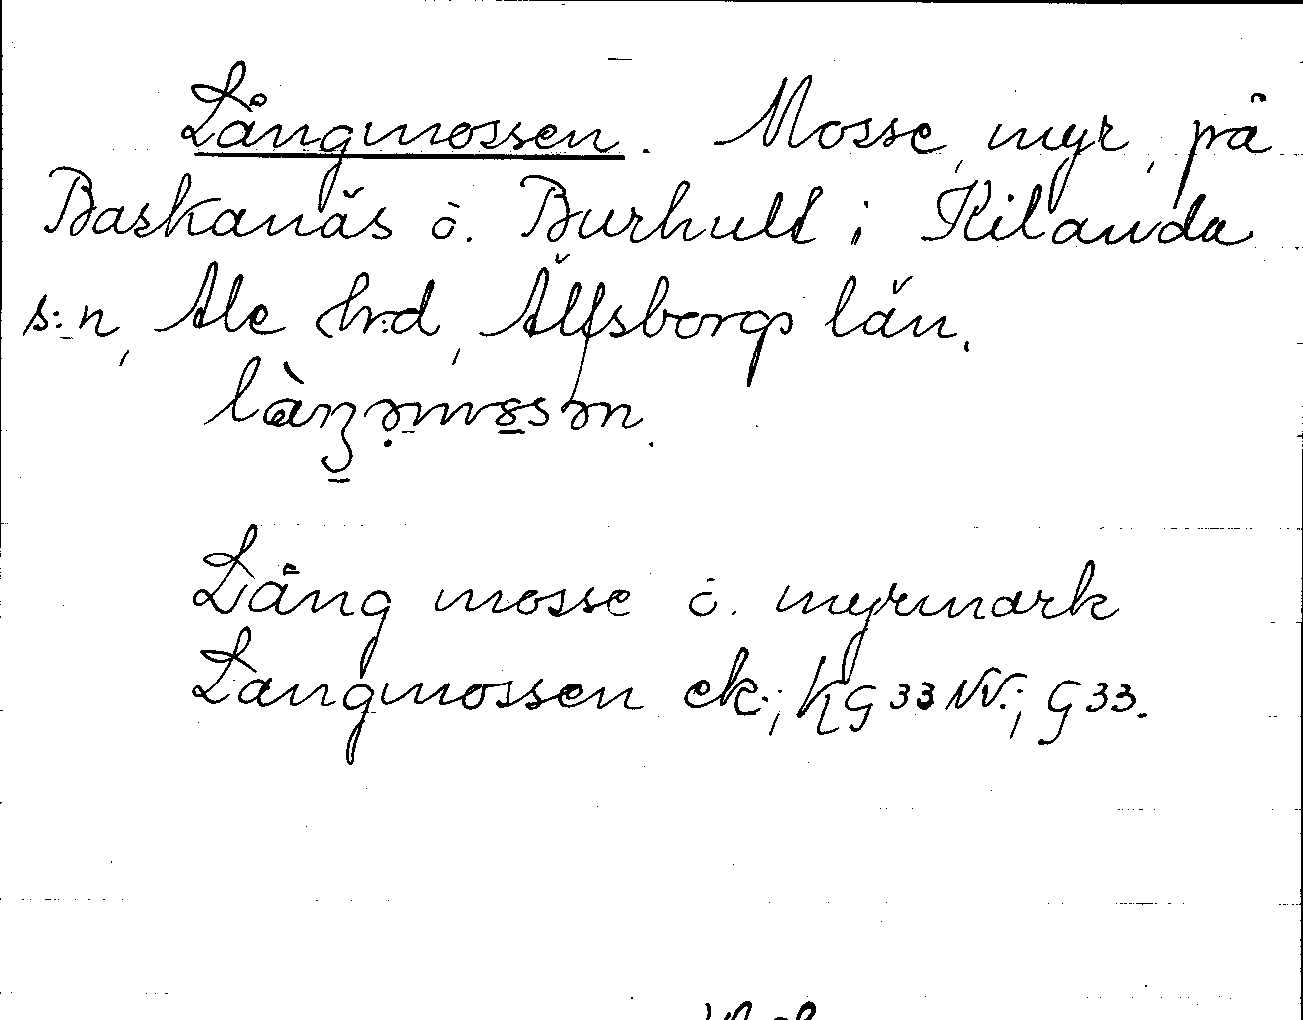 Långmossen. Mosse, myr, på
Baskanäs o. Burhult i Kilanda
s:n, Ale hrd, Älfsborgs län.

Lång mosse o. myrmark
Langmossen ek.; KG 33 NV.; G 33.